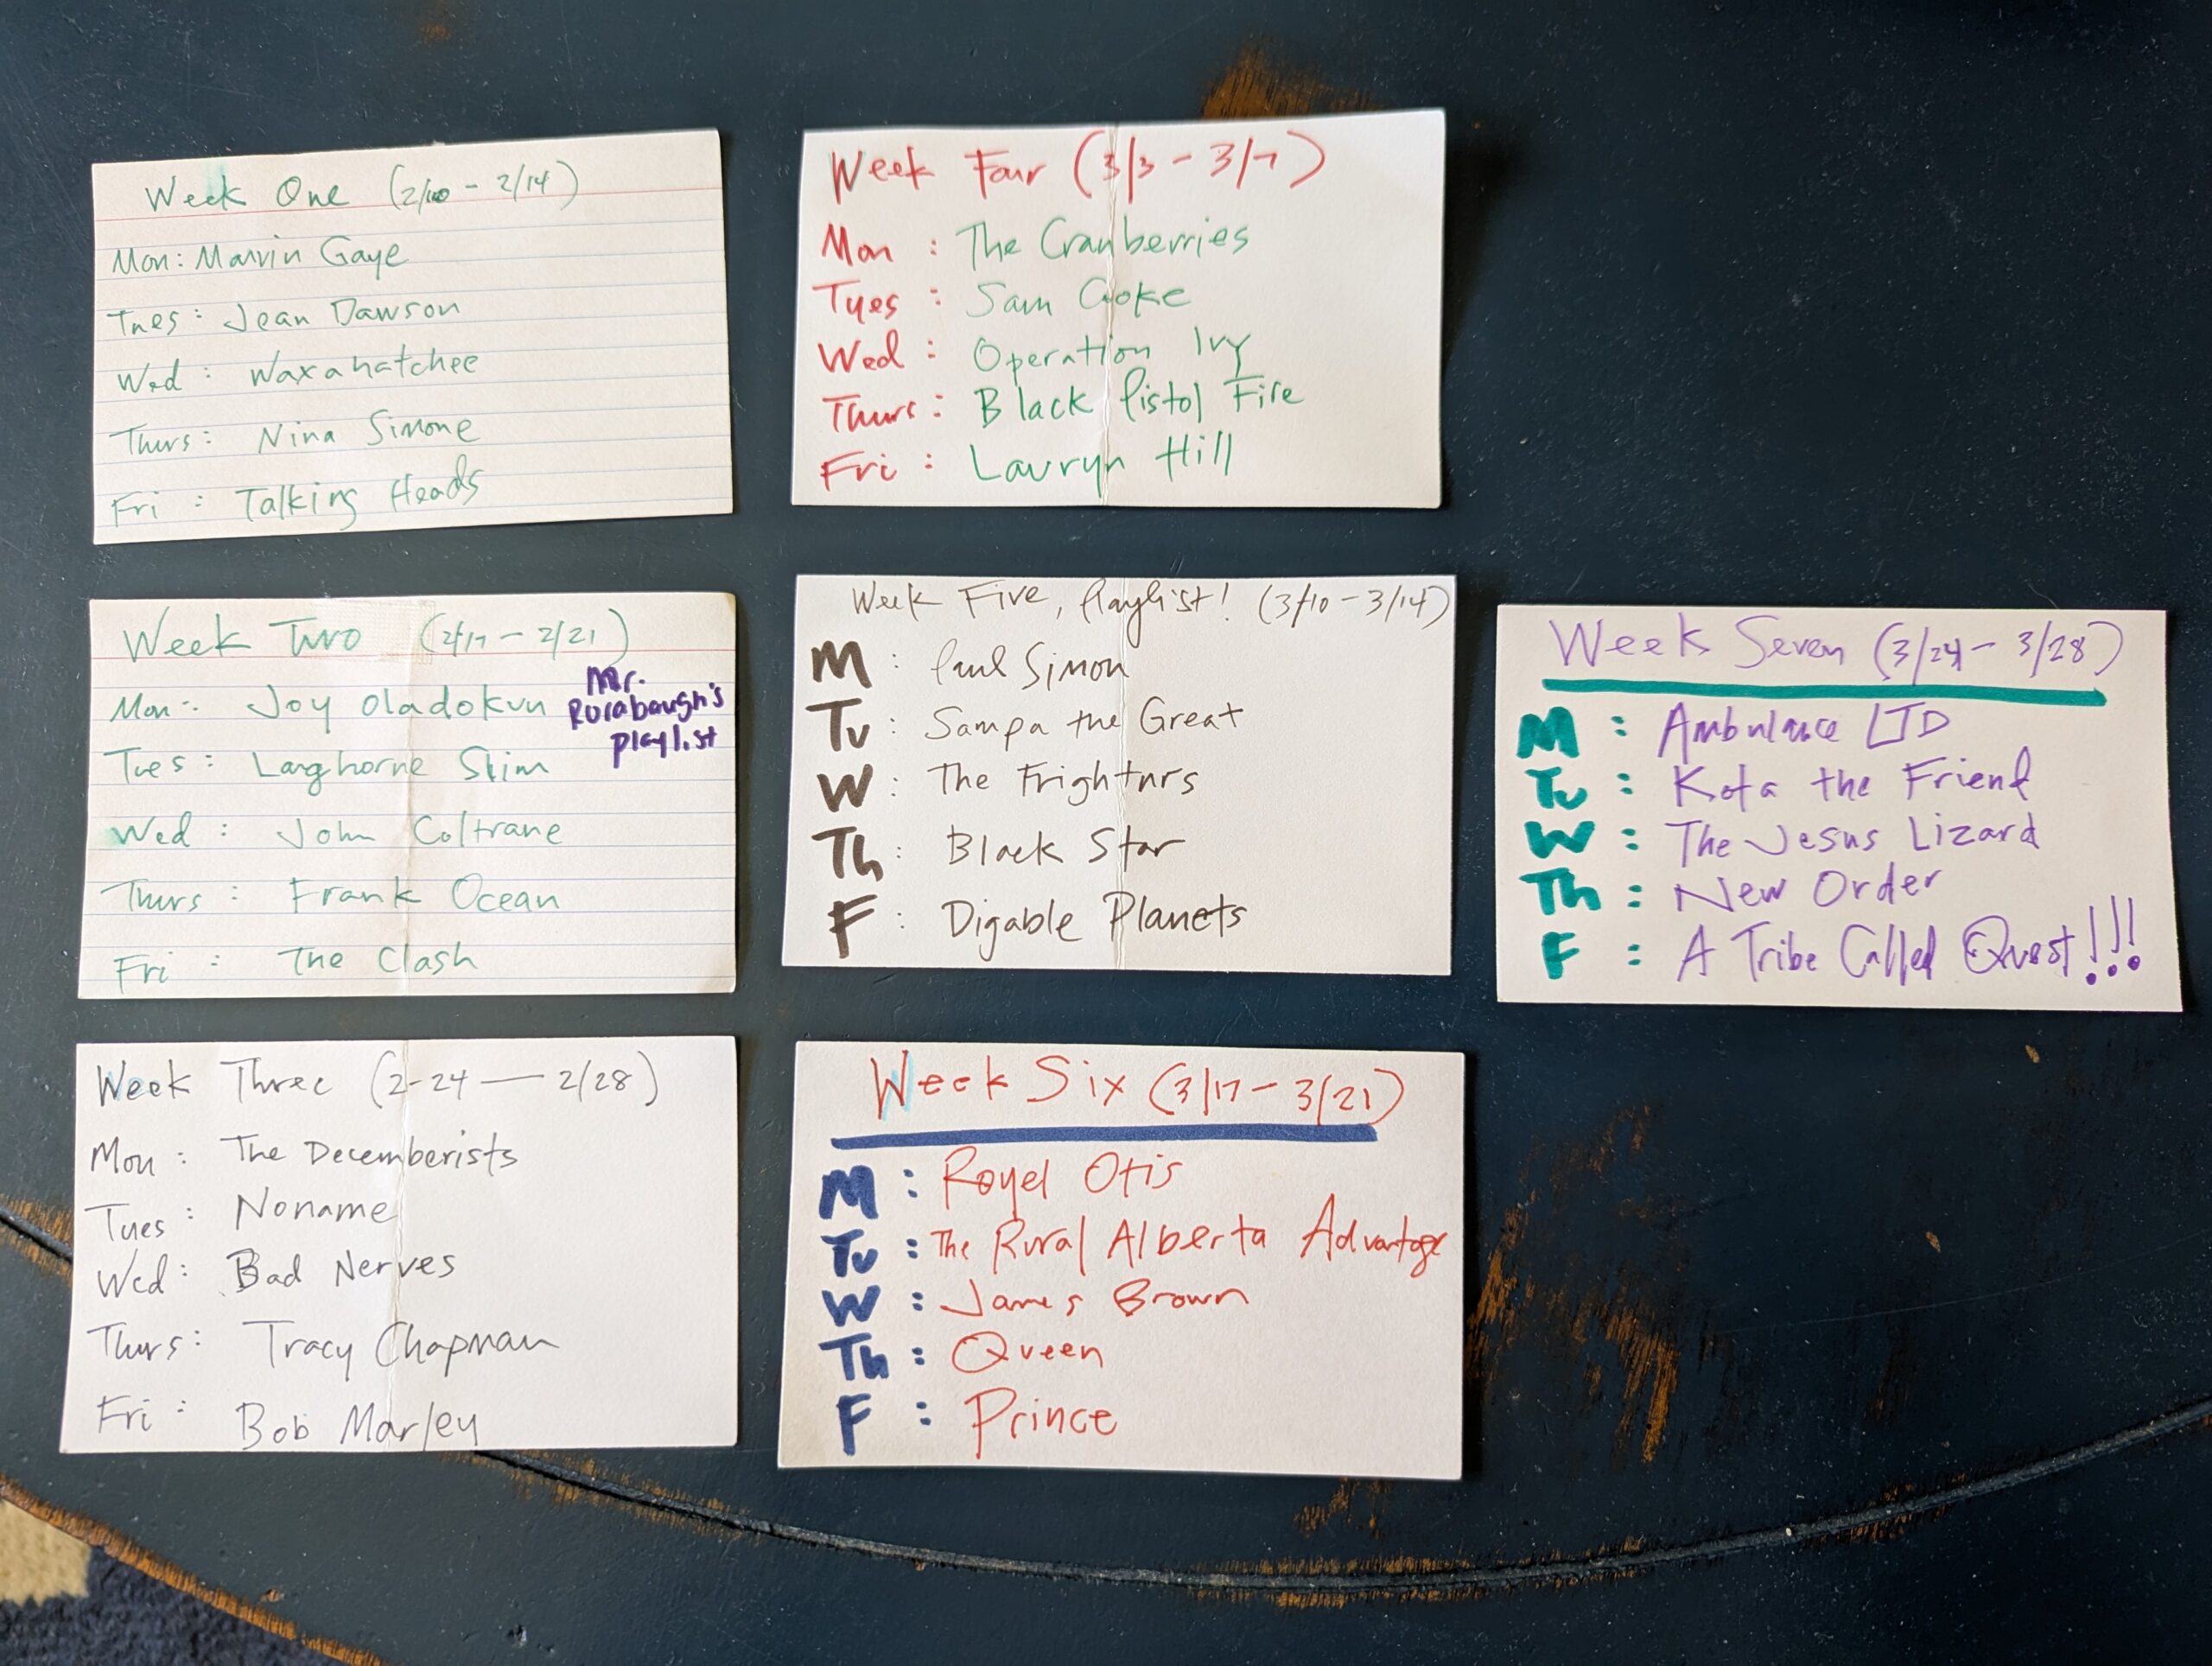 Week One (2/10 - 2/14)
Mon: Marvin Gaye
Tues: Jean Dawson
Wed: Waxahatchee
Thurs: Nina Simone
Fri: Talking Heads
Week Two (2/17 - 2/21)
Mon: Joy Oladokun
Tues: Langhorne Slim
Wed: John Coltrane
Thurs: Frank Ocean
Fri: The Clash
Mr.
Rorabaugh's
playlist
Week Three (2-24 — 2/28)
Mon: The Decemberists
Tues: Noname
Wed: Bad Nerves
Thurs: Tracy Chapman
Fri: Bob Marley
Week Four (3/3 - 3/7)
Mon: The Cranberries
Tues: Sam Cooke
Wed: Operation Ivy
Thurs: Black Pistol Fire
Fri: Lauryn Hill
Week Five, Playlist! (3/10 - 3/14)
M: Paul Simon
Tu: Sampa the Great
W: The Frightnrs
Th: Black Star
F: Digable Planets
Week Six (3/17 - 3/21)
M: Royel Otis
Tu: The Rural Alberta Advantage
W: James Brown
Th: Queen
F: Prince
Week Seven (3/24 - 3/28)
M: Ambulance LTD
Tu: Kota the Friend
W: The Jesus Lizard
Th: New Order
F: A Tribe Called Quest!!!